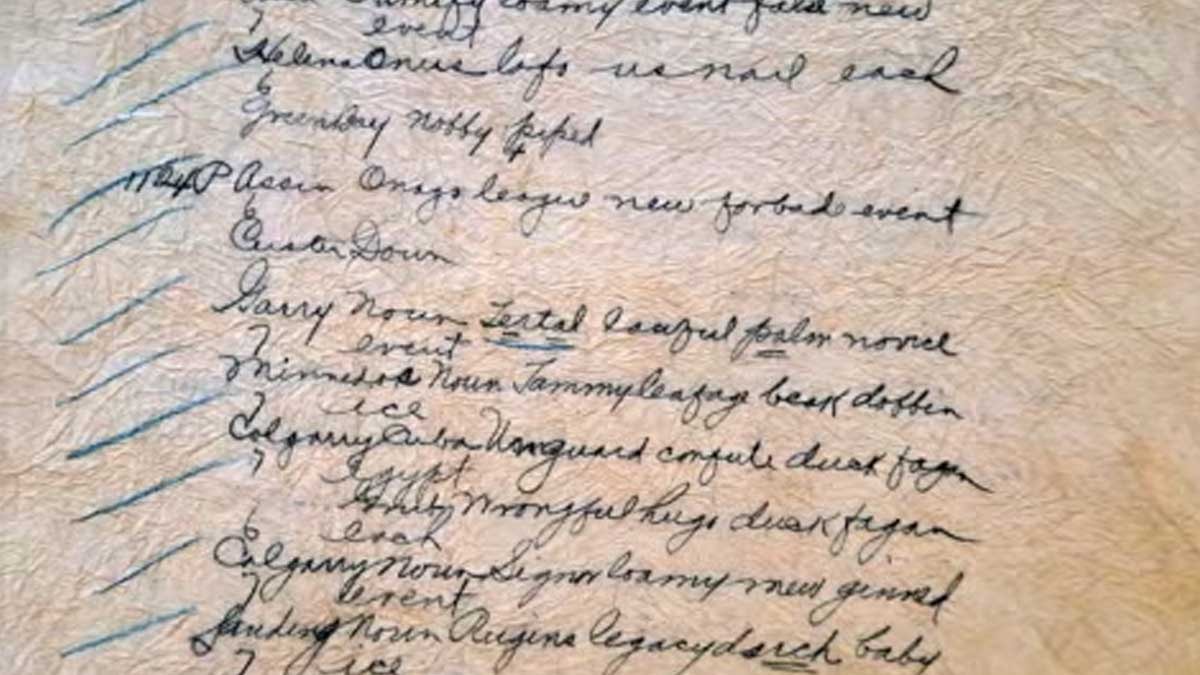 loamy event false new
event
Helena Onus lofo us nail each
E
Greenbay nobby piped
P Assin Onago league new forbade event
E
Custer Down
Garry Noun Tertal lawful palm novice
7 event
Minnedos Noun Jammy leafage beak dobbin
7 ice
Calgarry Cuba Unguard confute duck fagan
7 Egypt
Wrongful hugo duck fagan
E each
Calgarry Noun Signor loamy mew ginned
7 event
Landing Noun Rugins legacy duch baby
7 ice